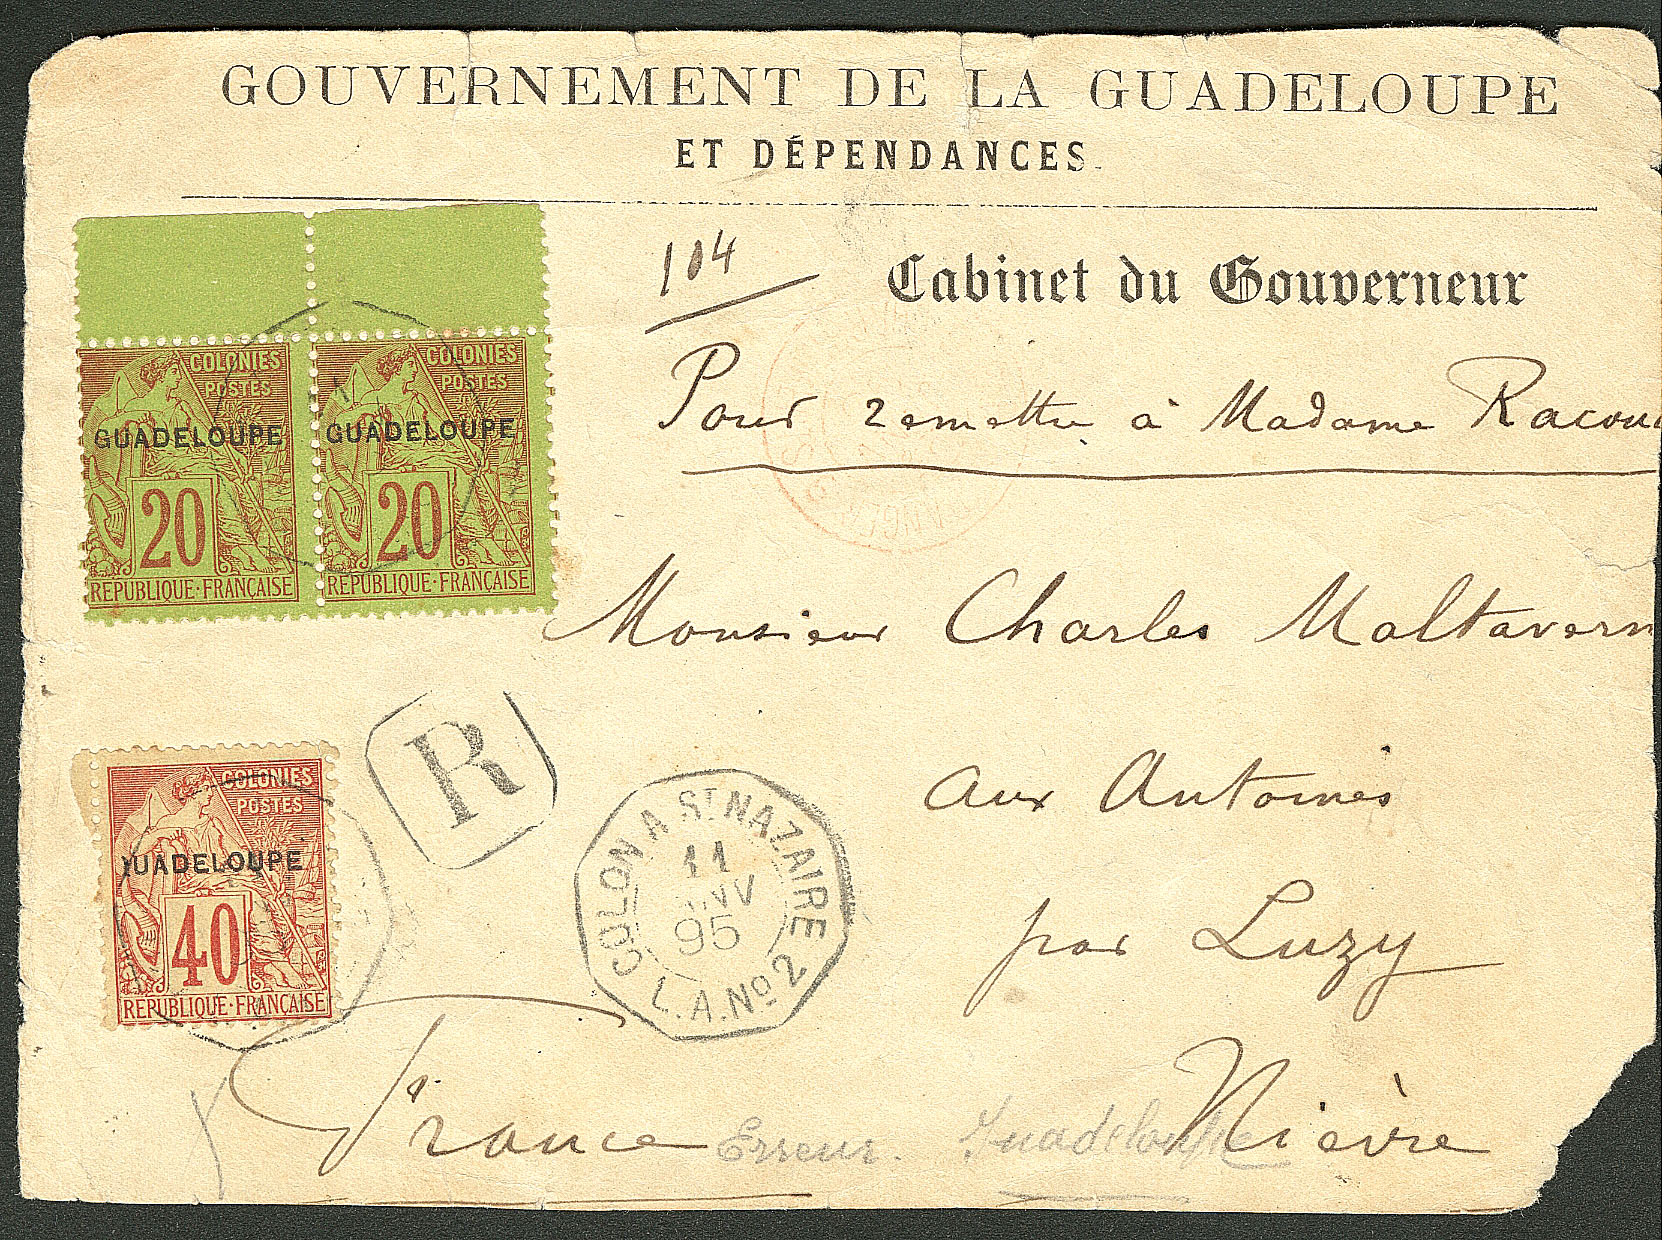 GOUVERNEMENT DE LA GUADELOUPE
ET DÉPENDANCES
104
Cabinet du Gouverneur
Pour remettre à Madame
COLONIES
POSTES
GUADELOUPE
20
REPUBLIQUE·FRANÇAISE
COLONIES
POSTES
GUADELOUPE
20
REPUBLIQUE·FRANÇAISE
Monsieur Charles
R
COLONIES
POSTES
GUADELOUPE
40
REPUBLIQUE·FRANÇAISE
COLON A ST NAZAIRE
11
JANV
95
L.A.No 2
aux Antoines
par Luzy
Nièvre
France
Erreur. Guadeloupe